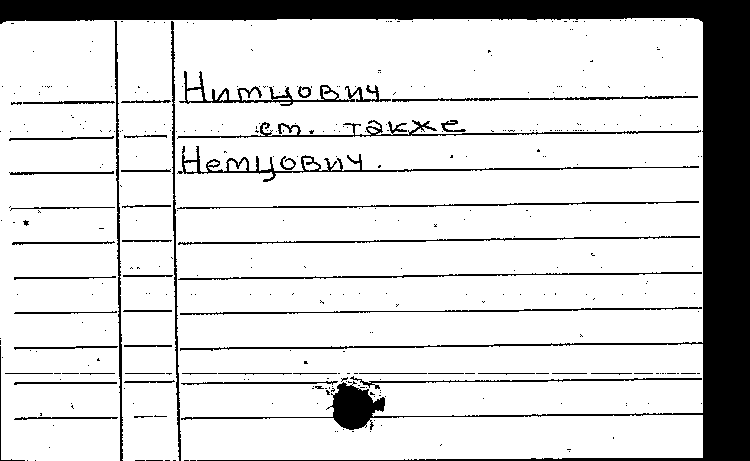 Нимцович
см. также
Немцович.